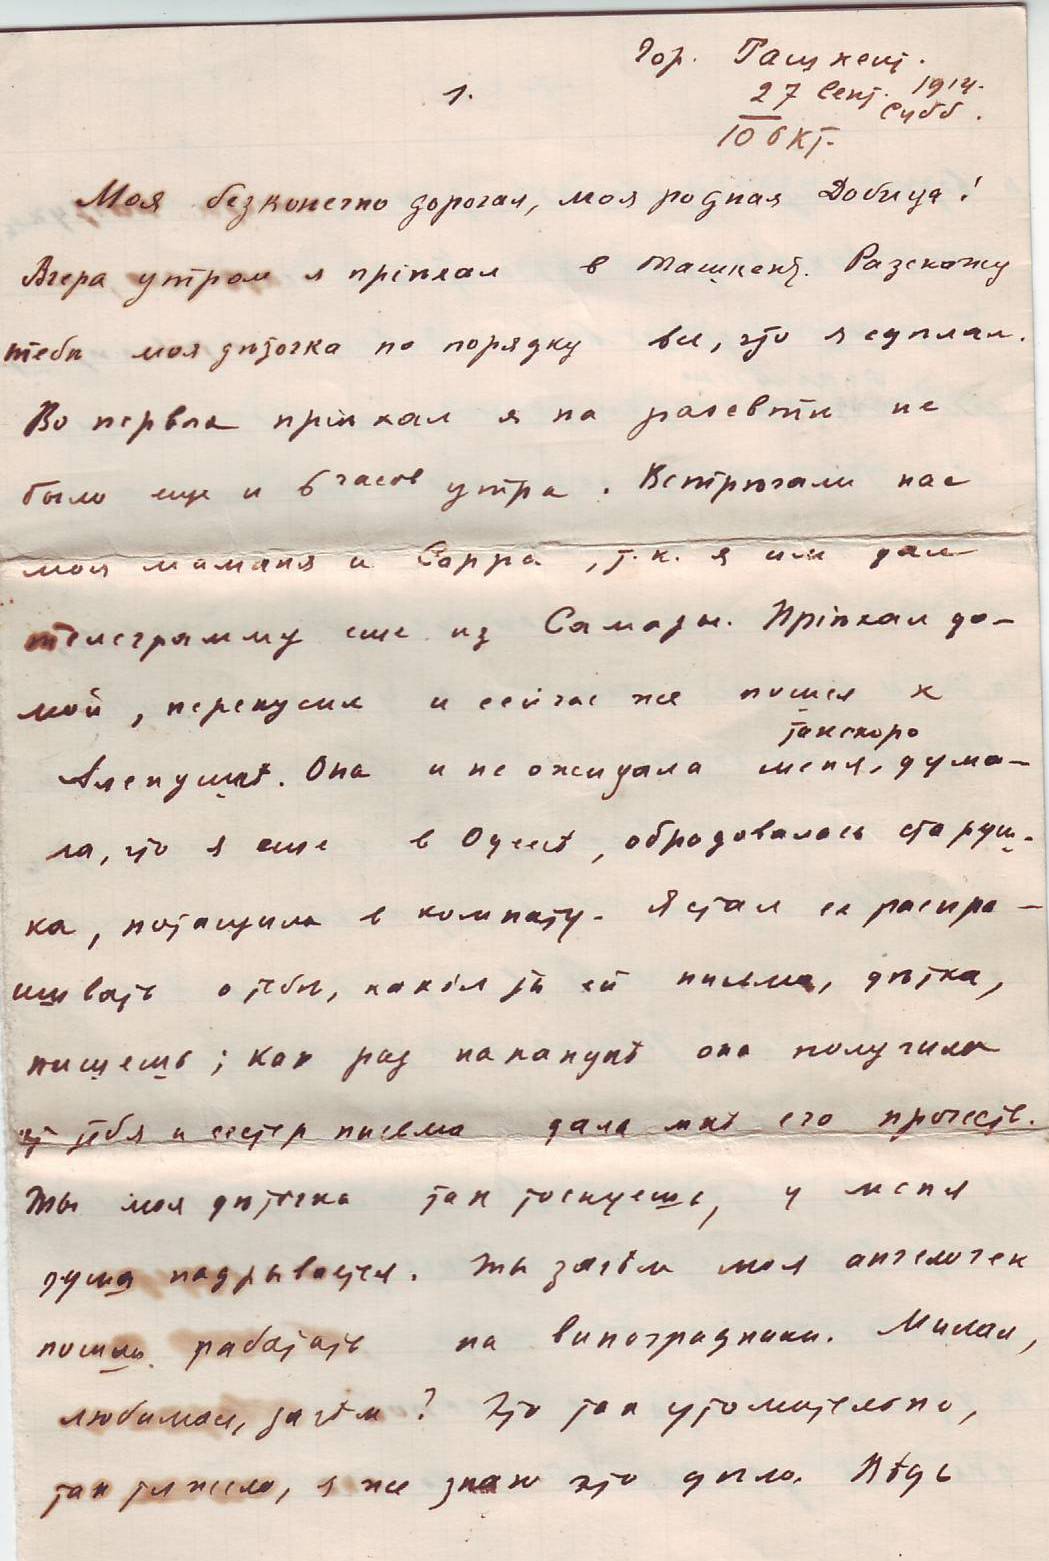 Гор. Ташкент.
1.
27 Сент. 1914.
Субб.
10 Окт.
Моя безконечно дорогая, моя родная Добица!
Вчера утром я пріѣхал в Ташкент. Разскажу
тебѣ моя дѣточка по порядку все, что я сдѣлал.
Во первых пріѣхал я на разсвѣтѣ не
было еще и 6 часов утра. Встрѣчали нас
моя мамаша и Сарра, т.к. я им дал
телеграмму еще из Самары. Пріѣхал до-
мой, перекусил и сейчас же пошел к
так скоро
Аленушкѣ. Она и не ожидала меня, дума-
ла, что я еще в Одессѣ, обрадовалась старуш-
ка, потащила в комнату. Я стал ее распра-
шивать о тебѣ, какія ты ей письма, дѣтка,
пишешь; как раз наканунѣ она получила
от тебя и сестер письмо дала мнѣ его прочесть.
Ты моя дѣточка так тоскуешь, у меня
душа надрывается. Ты зачѣм мой ангелочек
пошла работать на виноградники. Милая,
любимая, зачѣм? Это так утомительно,
так тяжело, я же знаю это дѣло. Вѣдь